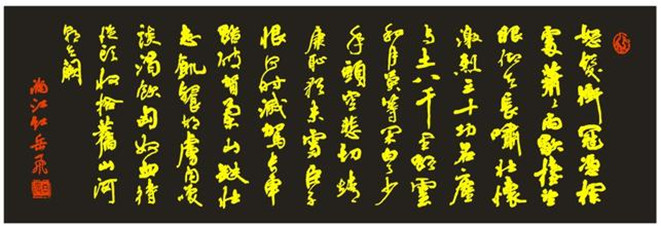 怒髮衝冠憑欄
處蕭〻雨歇抬望
眼仰天長嘯壯懷
激烈三十功名塵
与土八千里路雲
和月莫等閑白了少
年頭空悲切靖
康恥猶未雪臣子
恨何時滅駕長車
踏破賀蘭山缺壯
志飢餐胡虜肉笑
談渴飲匈奴血待
從頭收拾舊山河
朝天闕
滿江紅岳飛